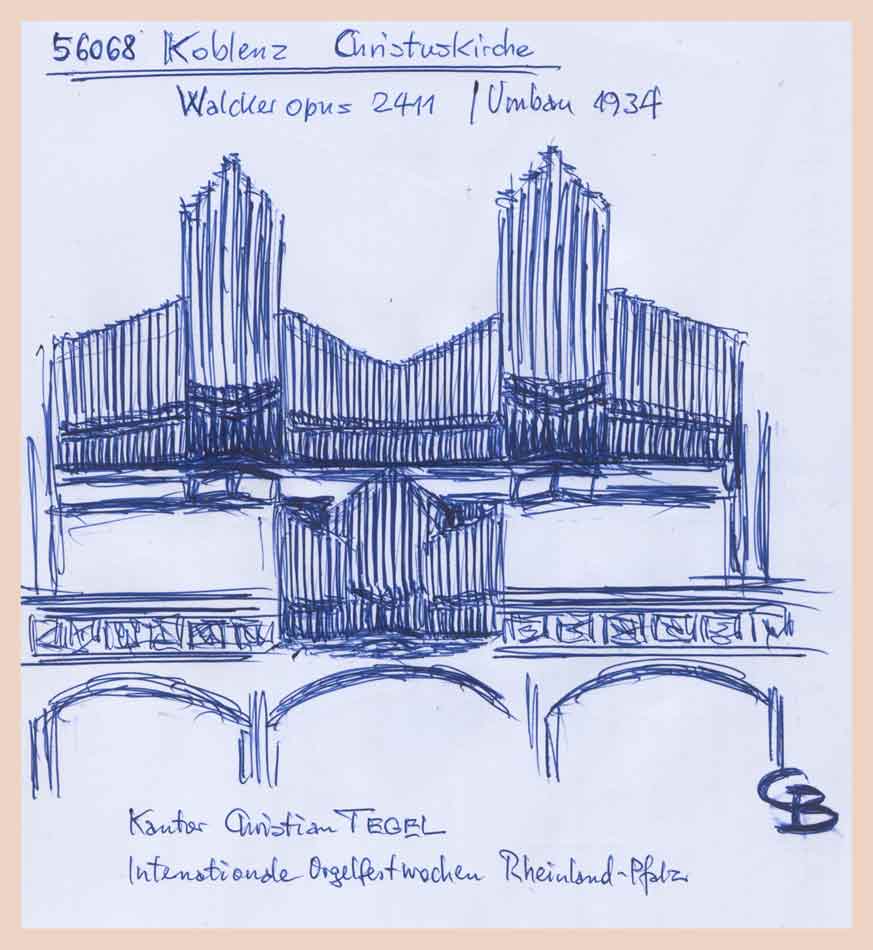 56068 Koblenz Christuskirche
Walcker opus 2411 / Umbau 1934
CB
Kantor Christian TEGEL
Internationale Orgelfestwochen Rheinland-Pfalz